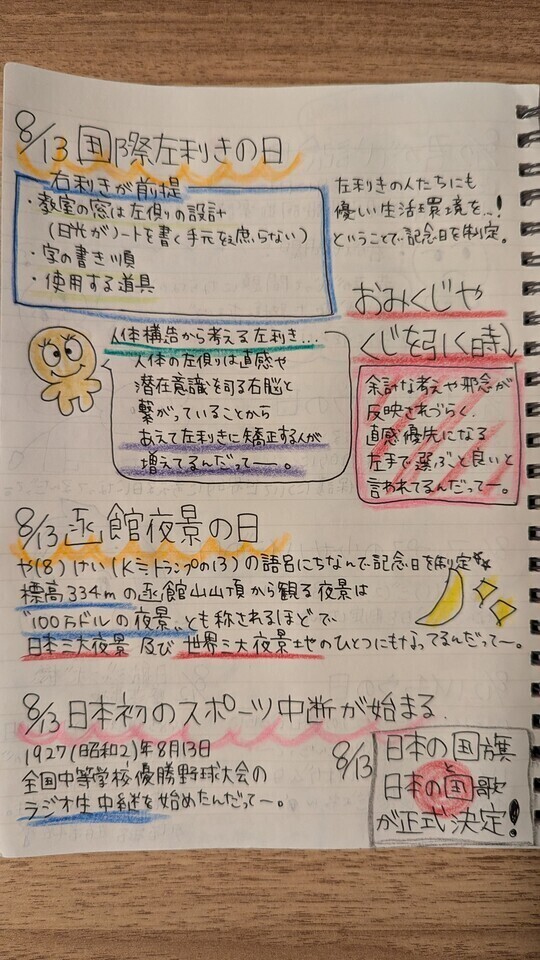 8/13 国際左利きの日
右利きが前提
・教室の窓は左側の設計
(日光がノートを書く手元を照らない)
・字の書き順
・使用する道具
左利きの人たちにも
優しい生活環境を…!
ということで記念日を制定。
おみくじや
くじを引く時↓
余計な考えや邪念が
反映されづらく、
直感優先になる
左手で選ぶと良いと
言われてるんだってー。
人体構造から考える左利き…
人体の左側りは直感や
潜在意識を司る右脳と
繋がっていることから
あえて左利きに矯正する人が
増えてるんだってー。
8/13 函館夜景の日
や(8)けい(Kミトランプの13)の語呂にちなんで記念日を制定
標高334mの函館山山頂から観る夜景は
"100万ドルの夜景"とも称されるほどで、
日本三大夜景 及び 世界三大夜景地のひとつにもなってるんだってー。
8/13 日本初のスポーツ中断が始まる
1927(昭和2)年8月13日
全国中等学校優勝野球大会の
ラジオ体中継を始めたんだってー。
8/13
日本の国旗
と
日本の国歌
が正式決定!